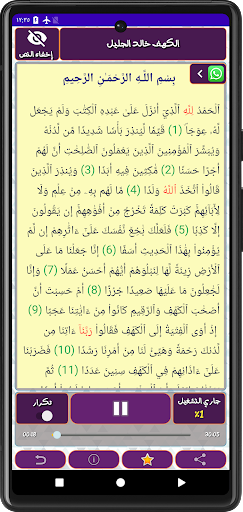 ١٢:٣٥
إخفاء النص
الكهف خالد الجليل
بِسْمِ اللَّهِ الرَّحْمَـٰنِ الرَّحِيمِ
ٱلْحَمْدُ لِلَّهِ ٱلَّذِيٓ أَنزَلَ عَلَىٰ عَبْدِهِ ٱلْكِتَٰبَ وَلَمْ يَجْعَل
لَّهُۥ عِوَجَاۜ (1) قَيِّمًا لِّيُنذِرَ بَأْسًا شَدِيدًا مِّن لَّدُنْهُ
وَيُبَشِّرَ ٱلْمُؤْمِنِينَ ٱلَّذِينَ يَعْمَلُونَ ٱلصَّٰلِحَٰتِ أَنَّ لَهُمْ
أَجْرًا حَسَنًا (2) مَّٰكِثِينَ فِيهِ أَبَدًا (3) وَيُنذِرَ ٱلَّذِينَ
قَالُوا۟ ٱتَّخَذَ ٱللَّهُ وَلَدًا (4) مَّا لَهُم بِهِۦ مِنْ عِلْمٍ وَلَا
لِأٓبَآئِهِمْ كَبُرَتْ كَلِمَةً تَخْرُجُ مِنْ أَفْوَٰهِهِمْ إِن يَقُولُونَ
إِلَّا كَذِبًا (5) فَلَعَلَّكَ بَٰخِعٌ نَّفْسَكَ عَلَىٰٓ ءَاثَٰرِهِمْ إِن لَّمْ
يُؤْمِنُوا۟ بِهَٰذَا ٱلْحَدِيثِ أَسَفًا (6) إِنَّا جَعَلْنَا مَا عَلَى
ٱلْأَرْضِ زِينَةً لَّهَا لِنَبْلُوَهُمْ أَيُّهُمْ أَحْسَنُ عَمَلًا (7) وَإِنَّا
لَجَٰعِلُونَ مَا عَلَيْهَا صَعِيدًا جُرُزًا (8) أَمْ حَسِبْتَ أَنَّ
أَصْحَٰبَ ٱلْكَهْفِ وَٱلرَّقِيمِ كَانُوا۟ مِنْ ءَايَٰتِنَا عَجَبًا (9)
إِذْ أَوَى ٱلْفِتْيَةُ إِلَى ٱلْكَهْفِ فَقَالُوا۟ رَبَّنَآ ءَاتِنَا مِن
لَّدُنكَ رَحْمَةً وَهَيِّئْ لَنَا مِنْ أَمْرِنَا رَشَدًا (10) فَضَرَبْنَا
عَلَىٰٓ ءَاذَانِهِمْ فِى ٱلْكَهْفِ سِنِينَ عَدَدًا (11) ثُمَّ
تكرار
جاري التشغيل
x1
00:18
30:05